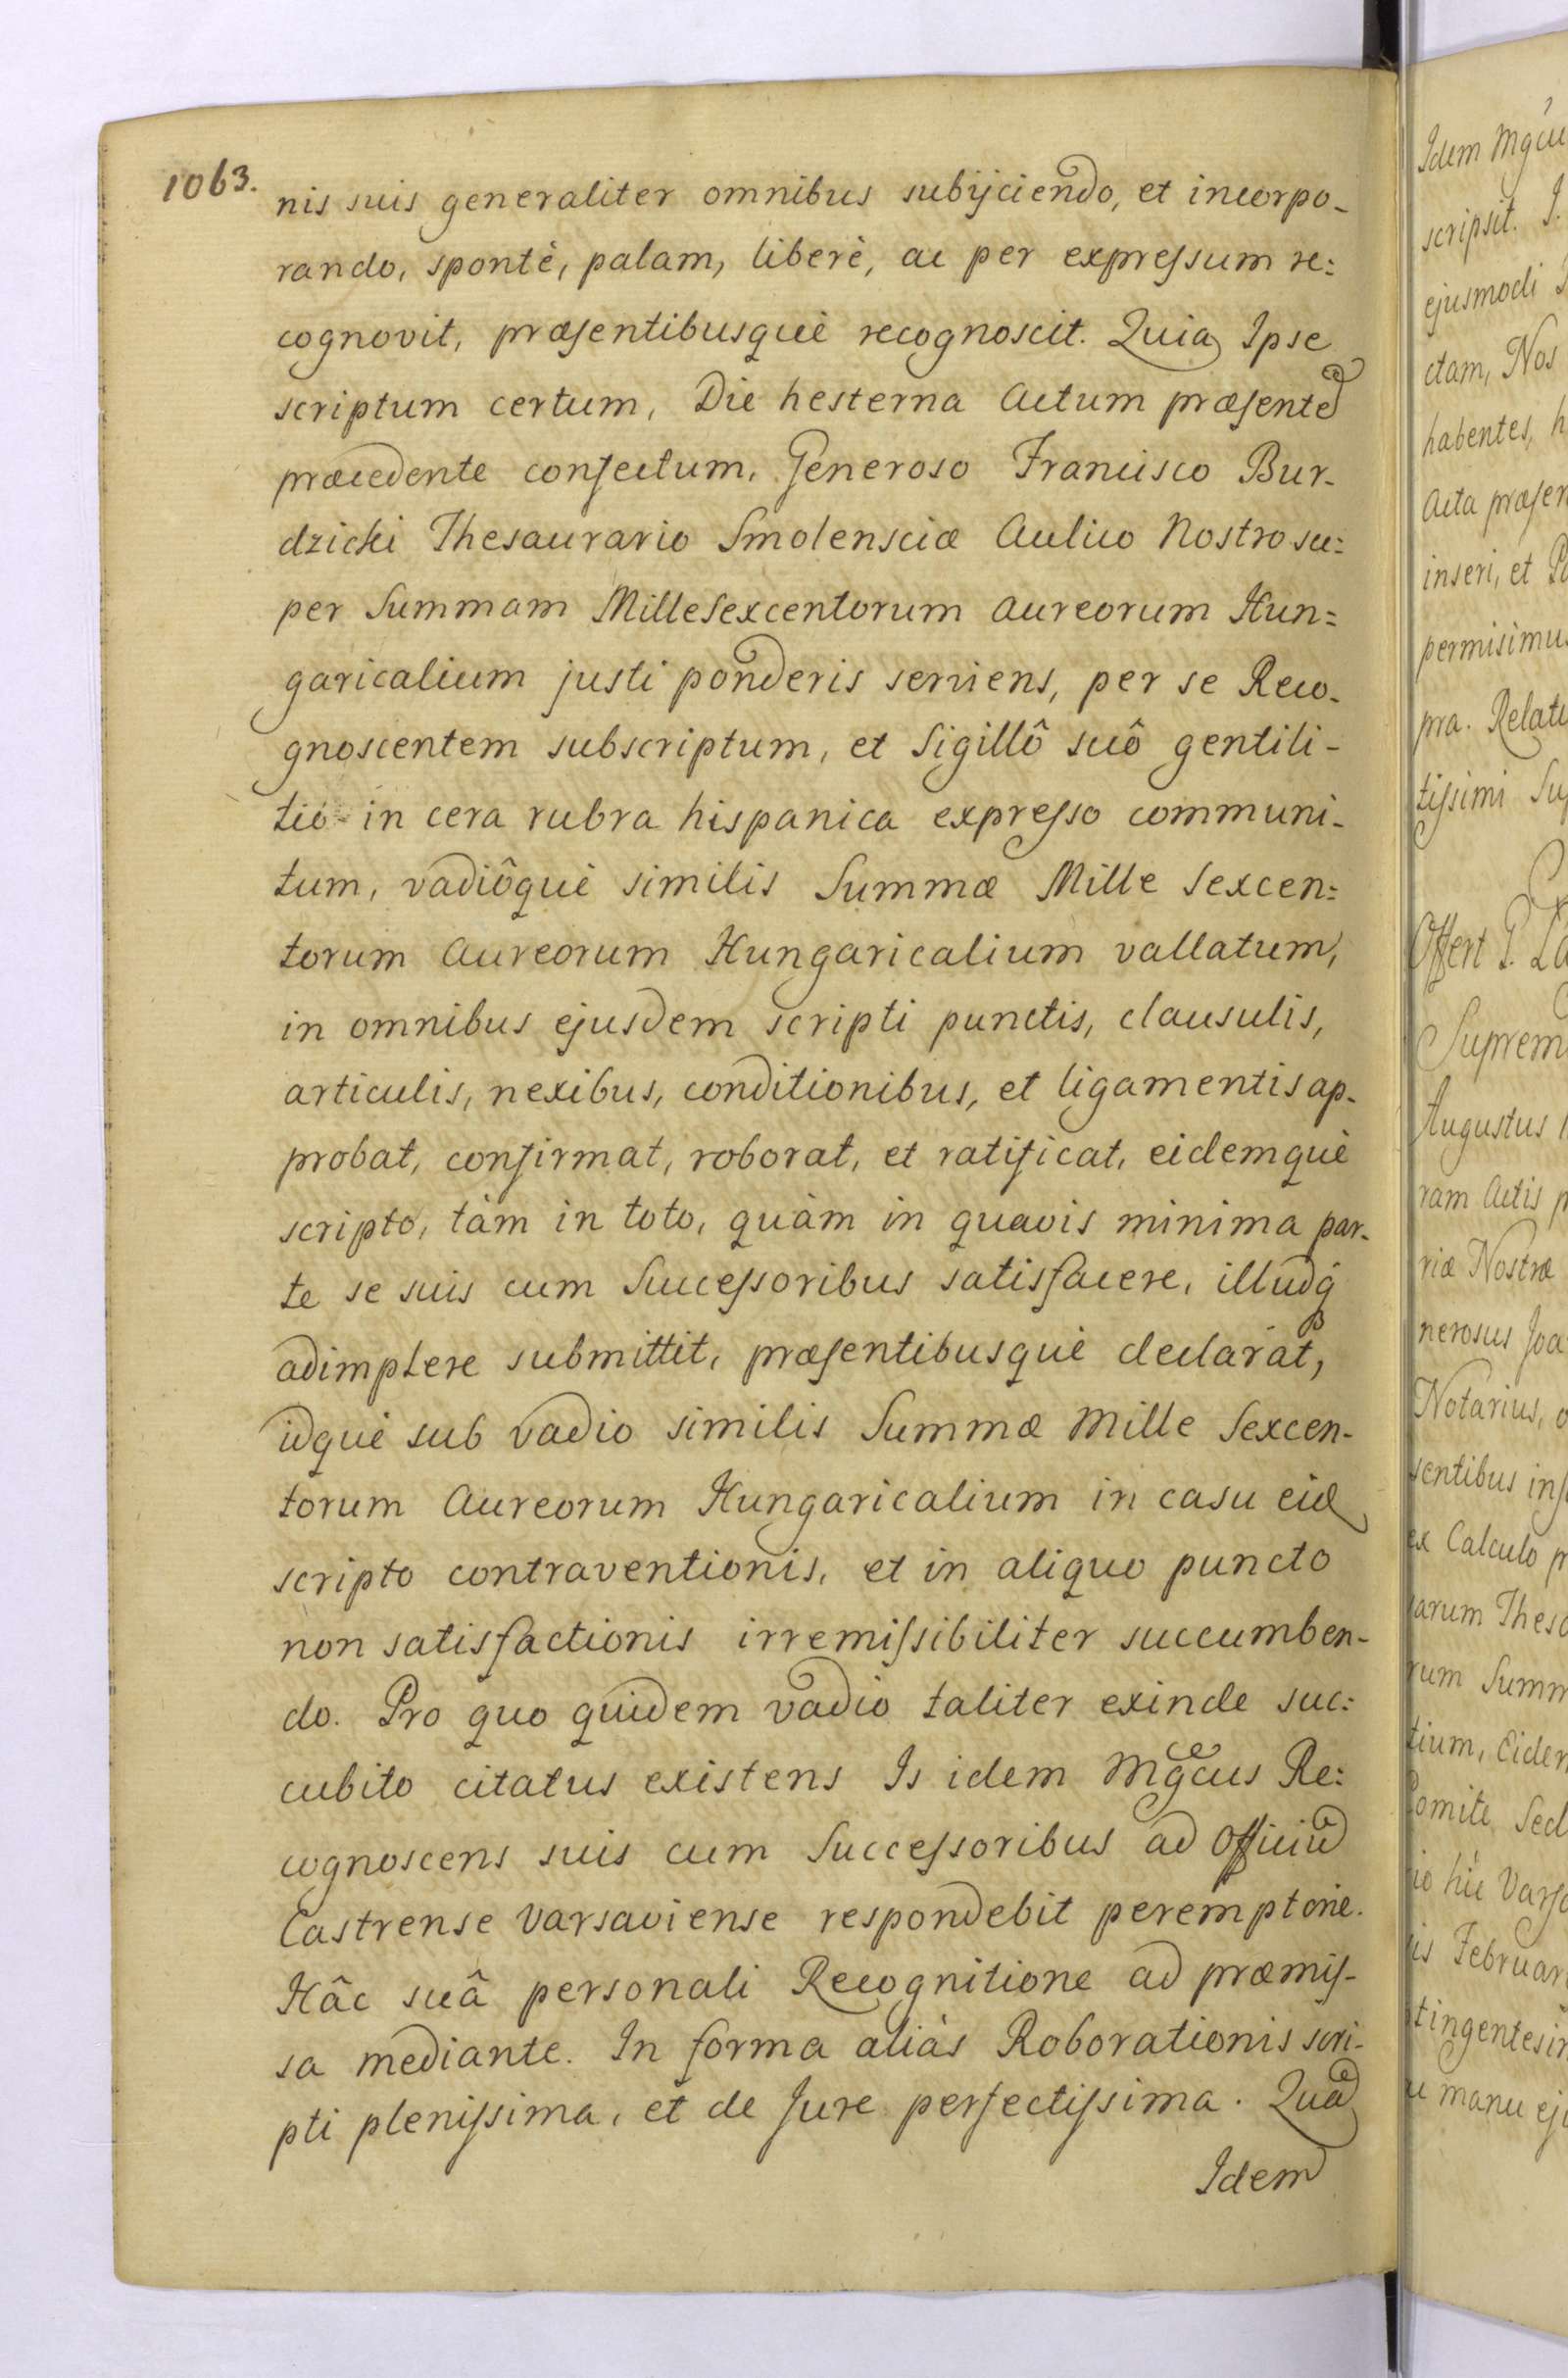 1063.
nis suis generaliter omnibus subijciendo, et incorpo-
rando, spontè, palam, liberè, ac per expressum re:
cognovit, præsentibusquè recognoscit. Quia Ipse
scriptum certum, Die hesterna Actum præsentẽ
præcedente confectum, Generoso Francisco Bur-
dzicki Thesaurario Smolensciæ Aulico Nostro su:
per Summam Mille Sexcentorum aureorum Hun:
garicalium justi ponderis serviens, per se Reco-
gnoscentem subscriptum, et Sigillô suô gentili-
tio in cera rubra hispanica expresso communi-
tum, vadiôquè similis Summæ Mille Sexcen:
torum Aureorum Hungaricalium vallatum,
in omnibus ejusdem scripti punctis, clausulis,
articulis, nexibus, conditionibus, et ligamentis ap-
probat, confirmat, roborat, et ratificat, eidemquè
scripto, tàm in toto, quàm in quavis minima par-
te se suis cum Successoribus satisfacere, illudq́
adimplere submittit, præsentibusquè declarat,
idquè sub vadio similis Summæ Mille Sexcen-
torum Aureorum Hungaricalium in casu eid
scripto contraventionis, et in aliquo puncto
non satisfactionis irremissibiliter succumben-
do. Pro quo quidem vadio taliter exinde suc:
cubito citatus existens Is idem Mgcus Re:
cognoscens suis cum Successoribus ad Officiũ
Castrense Varsaviense respondebit peremptorie.
Hâc suâ personali Recognitione ad præmis-
sa mediante. In forma aliàs Roborationis scri-
pti plenissima, et de Jure perfectissima. Quã
Idem
Idem Mgcu
scripsit. I.
ejusmodi
ctam, Nos
habentes, h
Acta præsen
inseri, et
permisimus
pra. Relati
tissimi Su
Offert G. La
Suprem
Augustus
ram Actis p
riæ Nostræ
nerosus Joa
Notarius, o
sentibus ins
ex Calculo p
arum Thesa
rum Summ
tium, Eidem
Comite
io hìc Varsa
is Februar
tingentesi
u manu eju